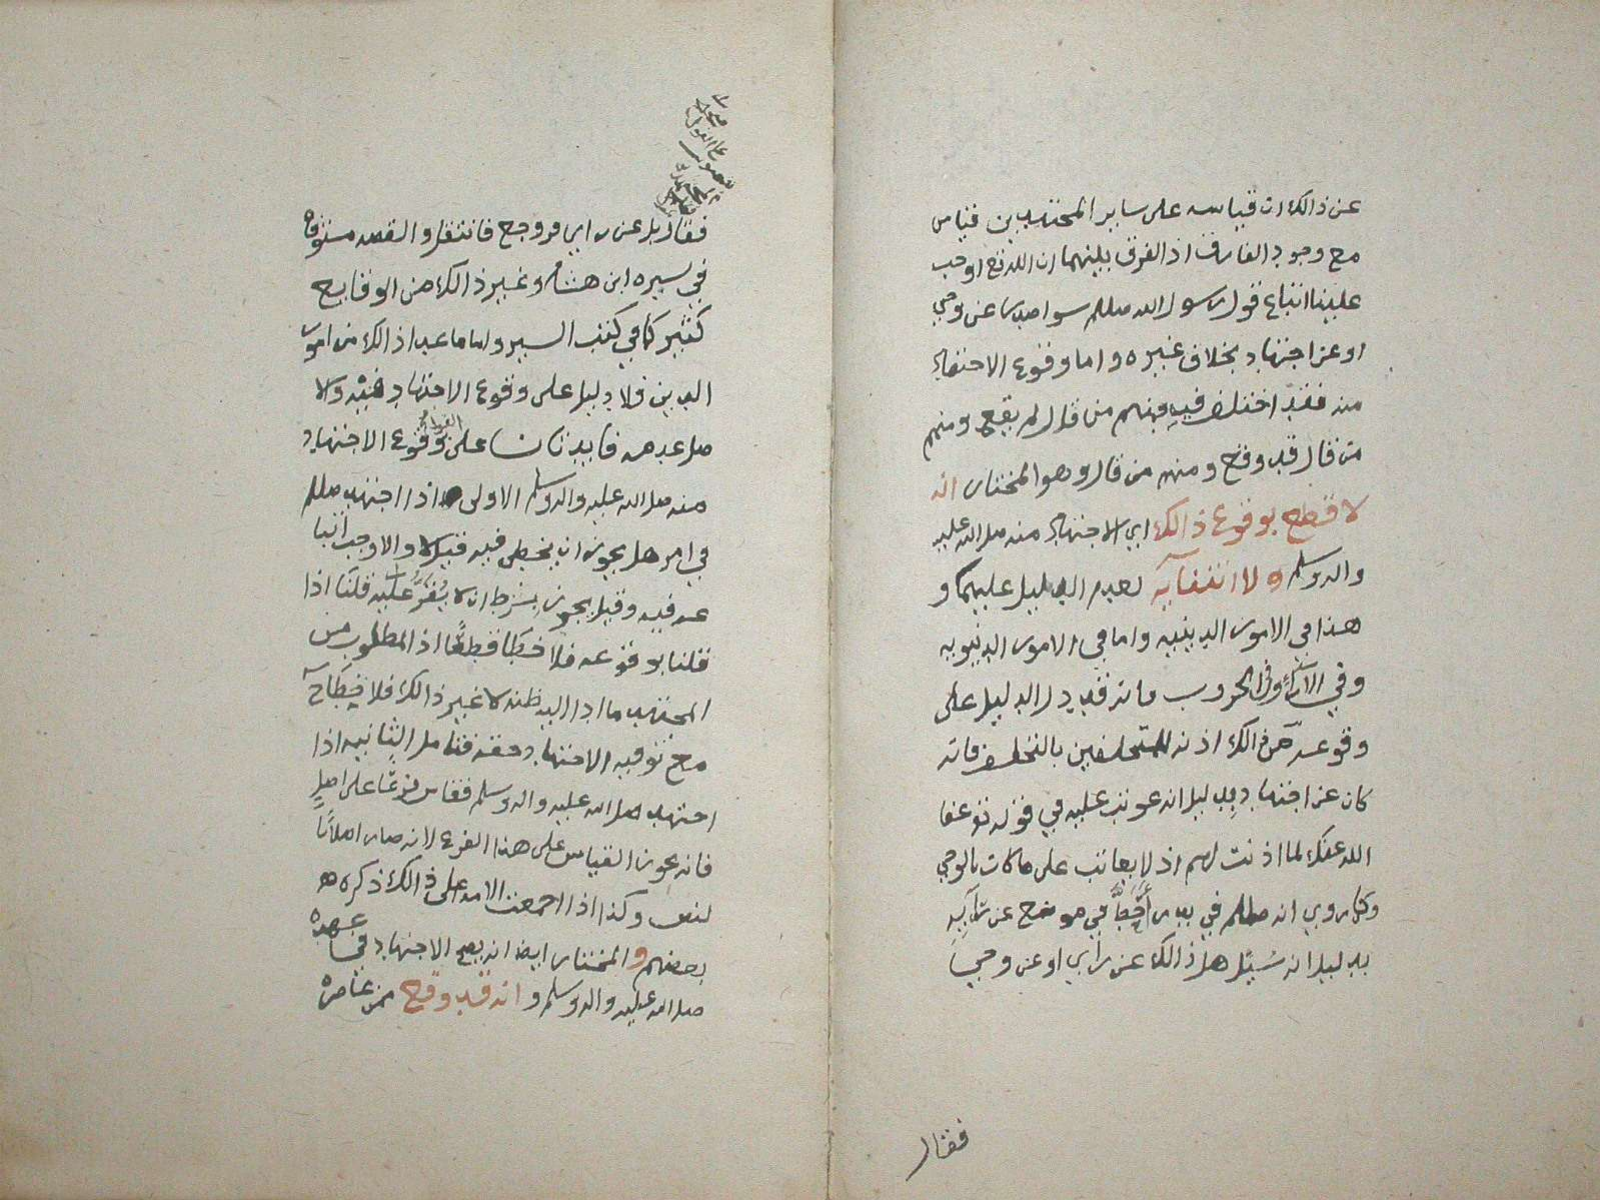 عن ذالك ان قياسه على ساير المجتهدين قياس
مع وجود الفارق اذ الفرق بينهما ان الله تع اوجب
علينا اتباع قول رسول الله صللم سوا صدر عن وحي
او عن اجتهاد بخلاف غيره واما وقوع الاجتهاد
منه فقد اختلف فيه فمنهم من قال لم يقع ومنهم
من قال قد وقع ومنهم من قال وهو المختار انه
لا قطع بوقوع ذالك اي الاجتهاد منه صلى الله عليه
واله وسلم ولا انتفايه لعدم الدليل عليهما و
هذا في الامور الدينيه واما في الامور الدنيويه
وفي الاراء وفي الحروب فانه قد دل الدليل على
وقوعه من ذالك اذنه للمتخلفين بالتخلف فانه
كان عن اجتهاد بدليل انه عوتب عليه في قوله تع عفا
الله عنك لما اذنت لهم اذ لا يعاتب على ما كان بالوحي
وكما روي انه صللم في بدر اخطا في موضع عن
بدليل انه سُئل هل ذالك عن راي او عن وحي
فقال
فقال بل عن راي فروجع فانتقل والقصه مستوفاه
في سيره ابن هشام وغير ذالك من الوقايع
كثير كما في كتب السير واما ما عدا ذالك من امور
الدين فلا دليل على وقوع الاجتهاد فيه ولا
على عدمه فايدتان على القول بوقوع الاجتهاد
منه صلى الله عليه واله وسلم الاولى اذا اجتهد صللم
في امر هل يجوز ان يخطي فيه قيل لا والا وجب اتبا
عه فيه وقيل يجوز بشرط ان لا يُقَرَّ عليه قلنا اذا
قلنا بوقوعه فلا خطا قطعًا اذ المطلوب من
المجتهد ما اداا اليه ظنه لا غير ذالك فلا خطاء
مع توفيه الاجتهاد حقه فتامل الثانيه اذا
اجتهد صلى الله عليه واله وسلم فقاس فرعًا على اصلٍ
فانه يجوز القياس على هذا الفرع لانه صار اصلاً
لنص وكذا اذا اجمعت الامه على ذالك ذكره
بعضهم والمختار ايضا انه يصح الاجتهاد في عهده
صلى الله عليه واله وسلم و انه قد وقع ممن عاصره